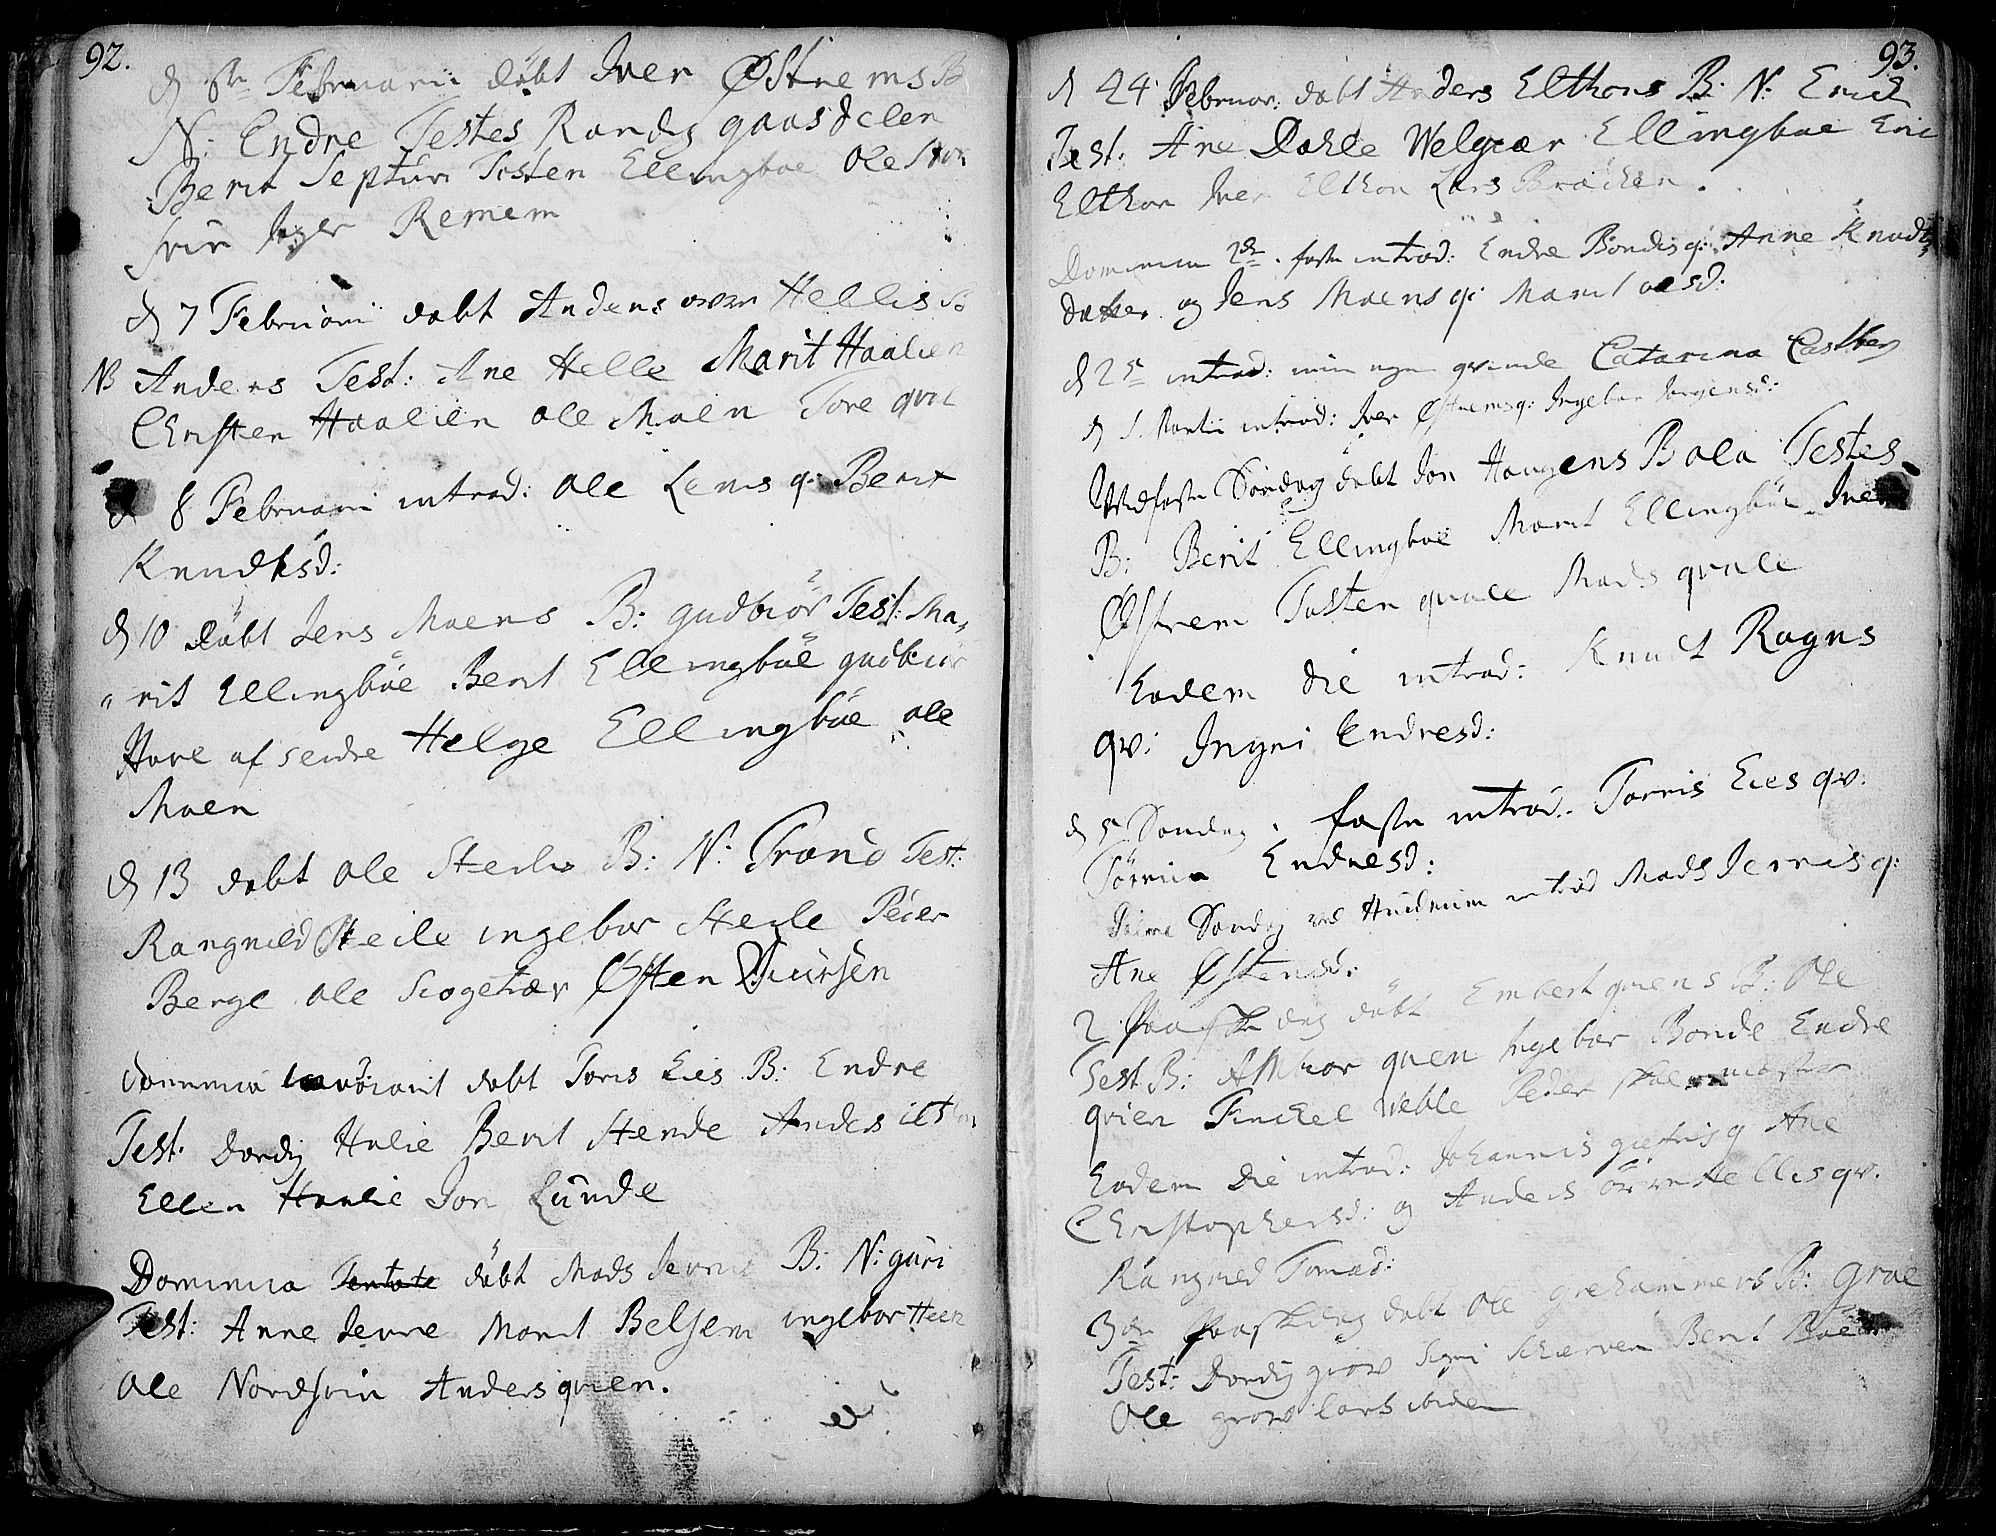 92.
d 6te Februarii döbt Iver Østrems B
N: Endre Testes Randj gaasdelen
Berit Septun Tosten Ellingbøe Ole
svin Inger Remem
d 7 Februarii døbt Anders Hellis B
NB Anders Test: Ane Helle Marit Haalien
Christen Haalien Ole Moen Tore qvil
d 8 Februarii introd: Ole Lenis q: Berit
Knudtsd:
d 10 döbt Jens Moens B: gudbiör Test: Ma,
rit Ellingböe Berit Ellingböe gudbiör
Hove af søndre Helge Ellingböe ole
Moen
d 13 døbt Ole Steiles B: N: Trønd Test:
Rangnild Steile ingebor Steile Peder
Berge Ole Scogetiær Østen Siursen
Dominica döbt Toris Eies B: Endre
Test: Dordij Hulie Berit Stende Anders
Ellen Hanlie Jon Lunde
Dominica döbt Mads Jevnis B: N: guri
Test: Anne Jevne Marit Belsem ingebor Heen
Ole Nordsvin Anders qvien.
93.
d 24 Februar: døbt Anders Elthons B: N: Erich
Test: Ane Dahle Welgiær Ellingbøe Eric
Elthon Iver Elthon Lars Bræcken.
Dominica 2de faste introd: Endre Bondis q: Anne Knudts
datter og Jens Moens q: Marit oesd:
d 25 introd: min egen qvinde Catarina Castberg
d 1. Martii introd: Iver Østrems q: Ingebor Jørgensd:
Midfaste Søndag döbt Jon Haugens B ola Testes
B: Berit Ellingböe Marit Ellingböe Iver
Østrem Tosten qvale Mads qvale
Eodem die introd: Knudt Rogns
qv: Ingri Endresd:
d 5 Søndag i faste introd: Torris Eies qv:
Törrina Endresd:
Palme Søndag ved Hudrum introd Mads Jevnis q:
Ane Østensd:
2 Paaske dag döbt Embert qviens B: Ole
Test B: Astbiør qvien Ingebor Bonde Endre
qvien Finckel weble Peder
Eodem Die introd: Johannis q Ane
Christophersd: og Anders Hellis qv:
Rangnild Tomesd:
3de Paaskedag döbt Ole grehammers B: groe
Test: Dordij grøv Sigri Schierven Berit
Ole grøv Lars ibidem